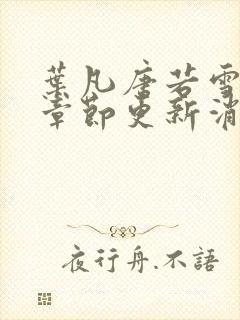 葉凡唐若雪
章節更新消
夜行舟.不語